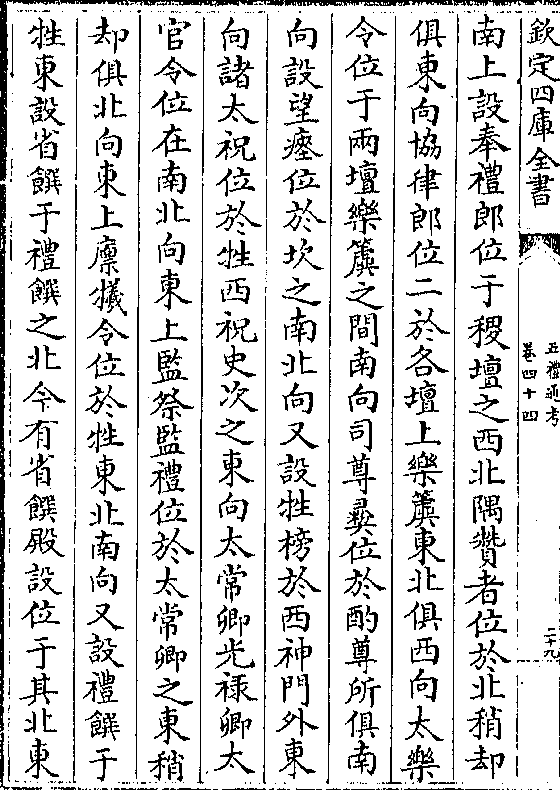 欽定四庫全書
五禮通考
卷四十四
二十九
南上設奉禮郎位于稷壇之西北隅贊者位於北稍却
俱東向協律郎位二於各壇上樂簴東北俱西向太樂
令位于兩壇樂簴之間南向司尊彛位於酌尊所俱南
向設望瘞位於坎之南北向又設牲榜於西神門外東
向諸太祝位於牲西祝史次之東向太常卿光禄卿太
官令位在南北向東上監祭監禮位於太常卿之東稍
却俱北向東上廪犧令位於牲東北南向又設禮饌于
牲東設省饌于禮饌之北今有省饌殿設位于其北東